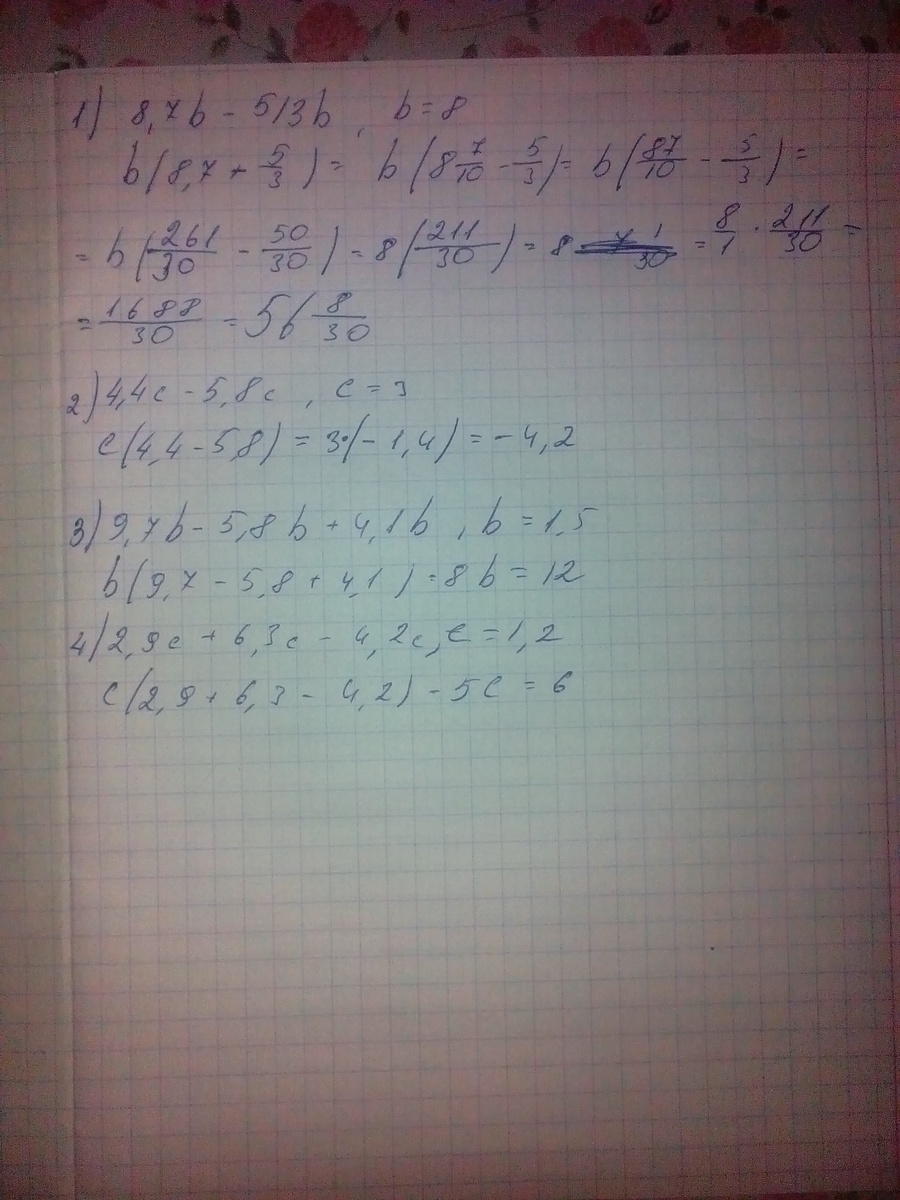 1) 8,7b - 5/3b, b = 8
b(8,7 + 5/3) = b(8 7/10 - 5/3) = b(87/10 - 5/3) =
= b(261/30 - 50/30) = 8(211/30) = 8 = 8/1 · 211/30 =
= 1688/30 = 56 8/30
2) 4,4c - 5,8c, c = 3
c(4,4 - 5,8) = 3·(-1,4) = -4,2
3) 9,7b - 5,8b + 4,1b, b = 1,5
b(9,7 - 5,8 + 4,1) = 8b = 12
4) 2,9c + 6,3c - 4,2c, c = 1,2
c(2,9 + 6,3 - 4,2) - 5c = 6